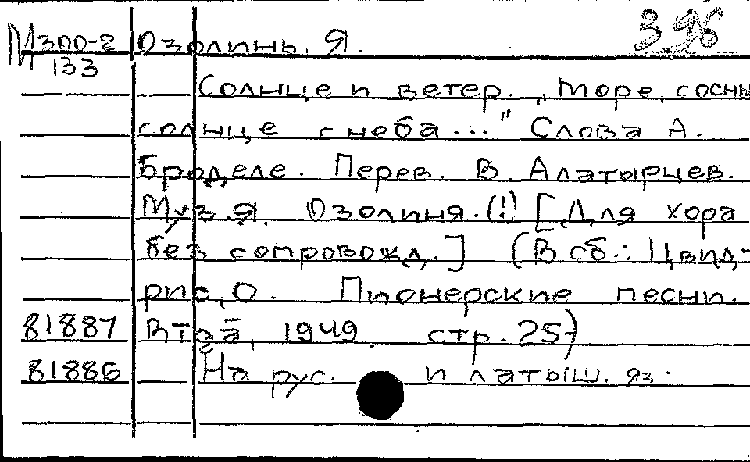 М300-2 Озолинь. Я. 3.96
133
Солнце и ветер. „Море, сосны
солнце с неба..." Слова А.
Броделе. Перев. В. Алатырцев.
Муз. Я. Озолиня. (!) [Для хора
без сопровожд.] (В сб.: Цвид-
рис, О. Пионерские песни.
81887 Вып. 2, 1949, стр. 25)
81886 На рус. и латыш. яз.